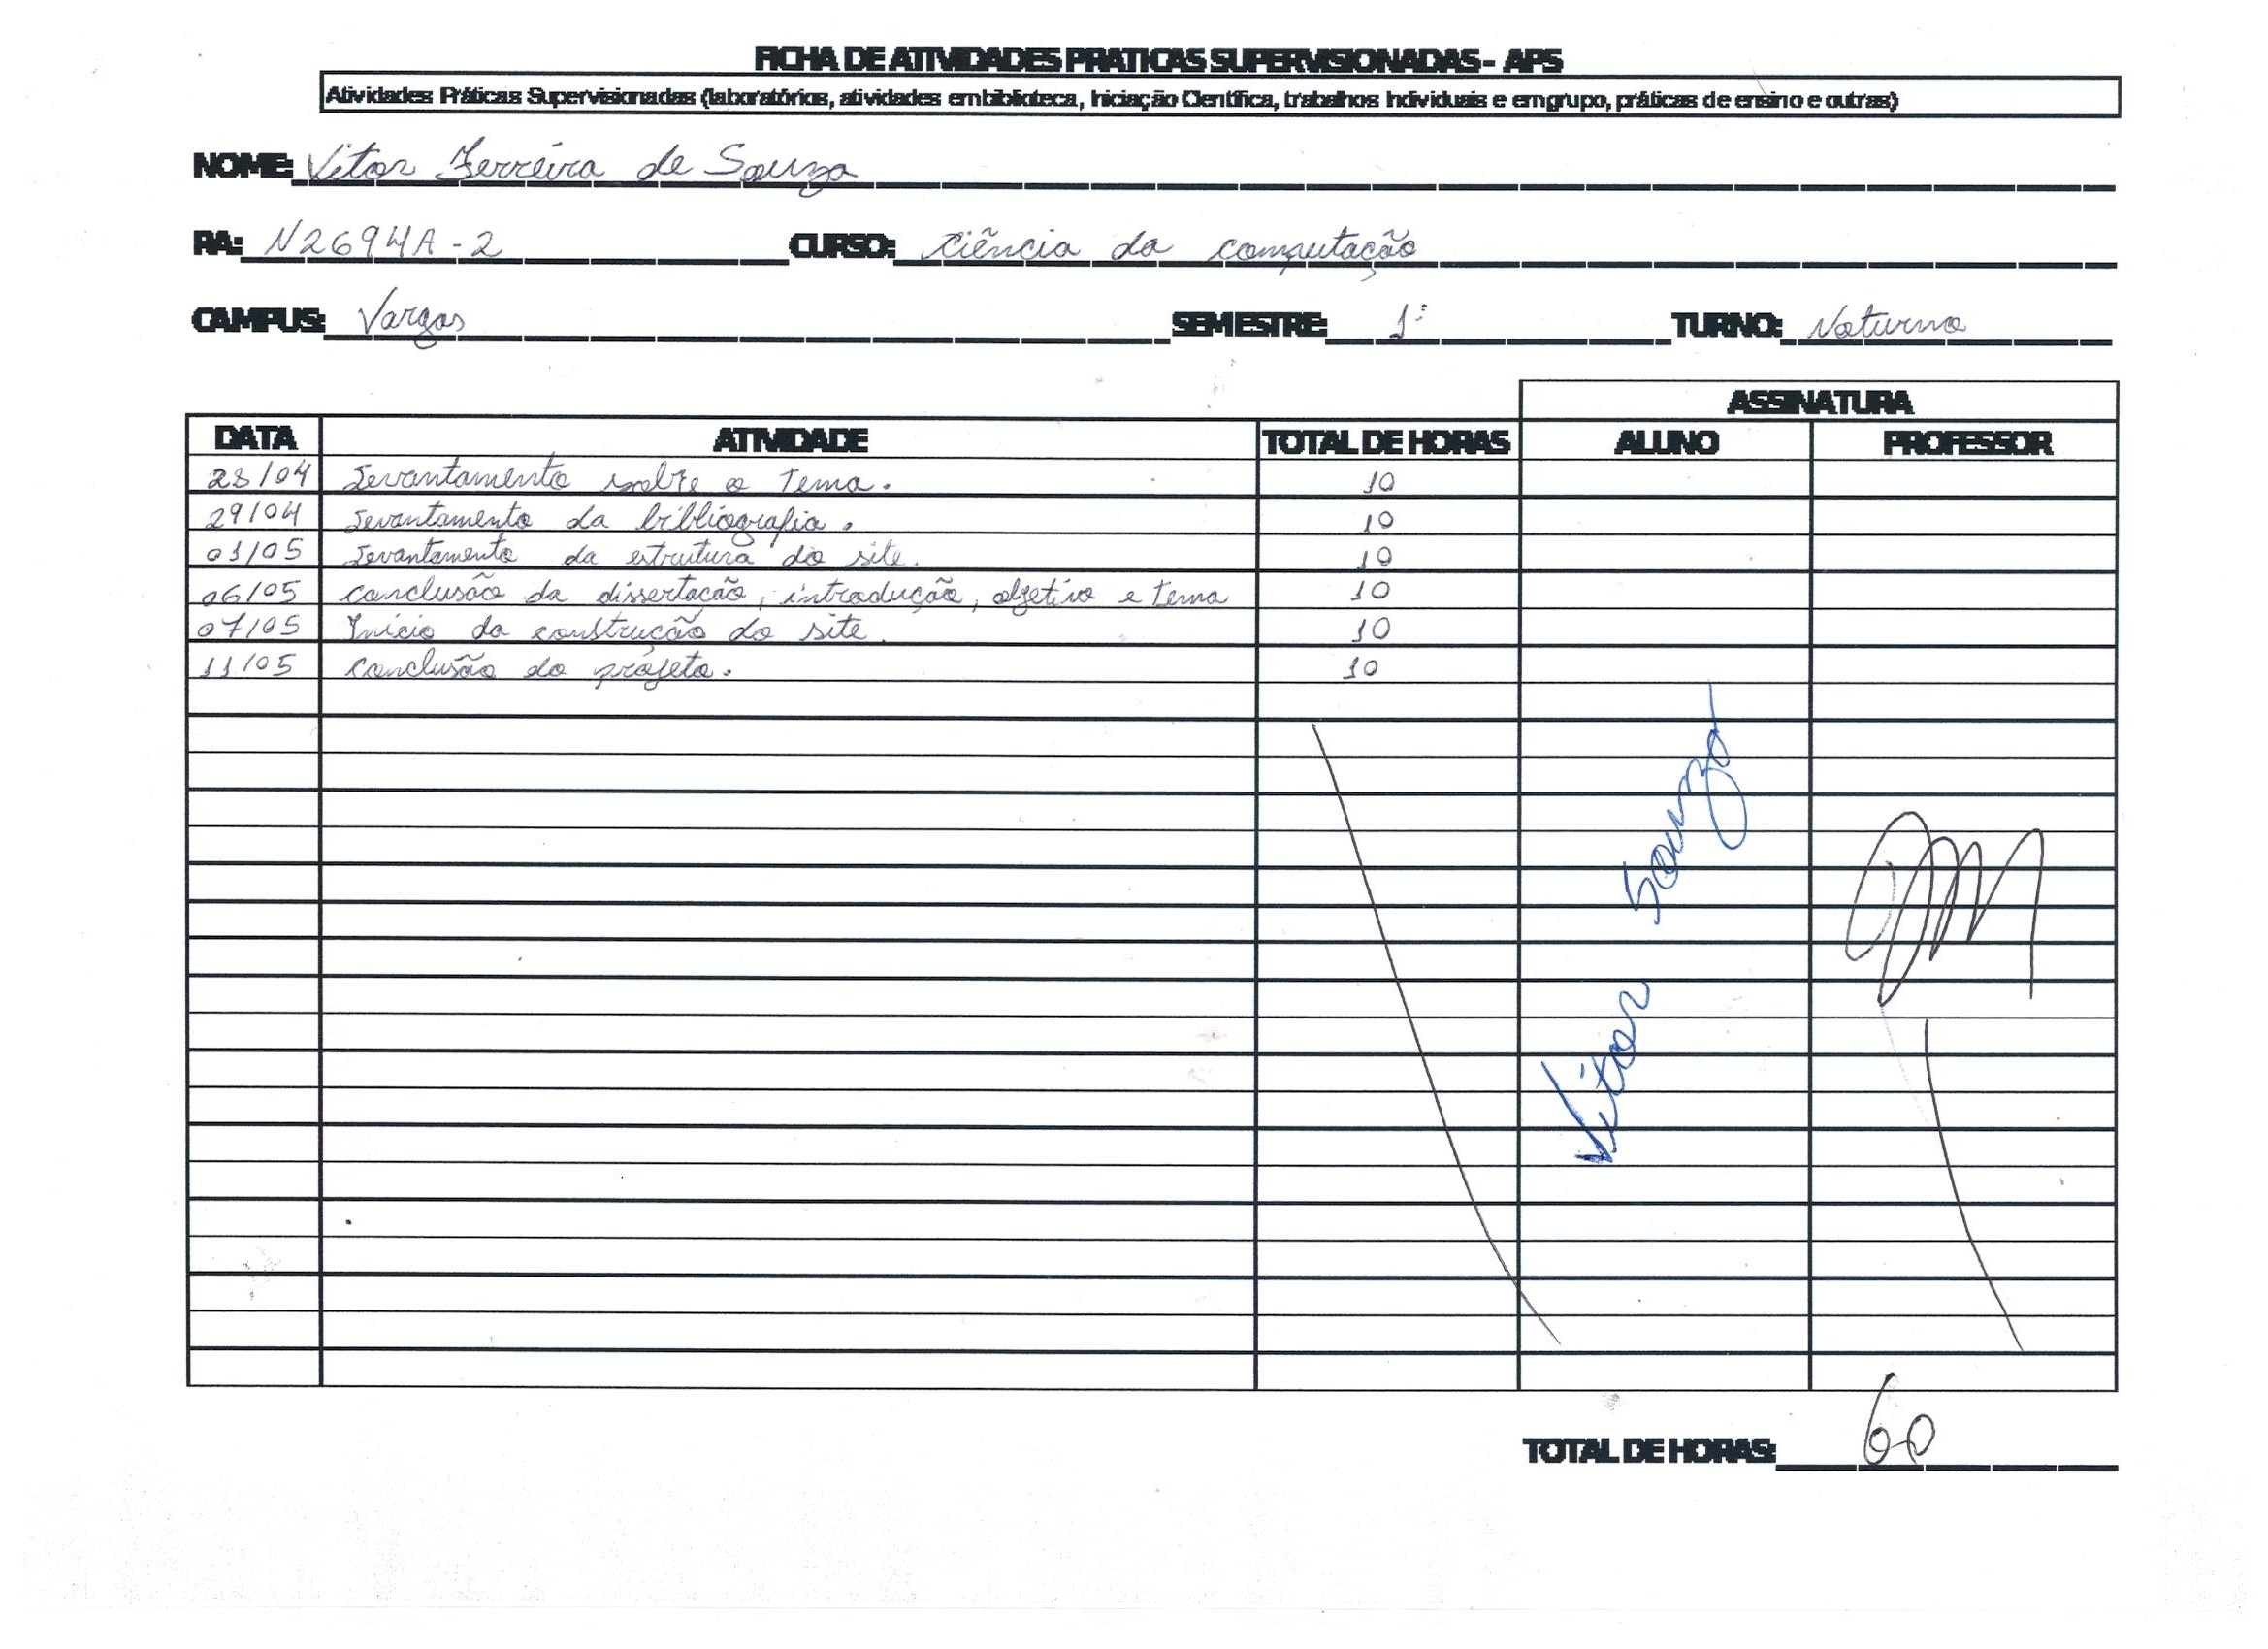 FICHA DE ATIVIDADES PRATICAS SUPERVISIONADAS - APS
Atividades Práticas Supervisionadas (laboratórios, atividades em biblioteca, Iniciação Científica, trabalhos Individuais e em grupo, práticas de ensino e outras)
NOME: Vitor Ferreira de Souza
RA: N2694A-2 CURSO: Ciência da computação
CAMPUS: Vargas SEMESTRE: 1º TURNO: Noturno
ASSINATURA
DATA ATIVIDADE TOTAL DE HORAS ALUNO PROFESSOR
28/04 Levantamento sobre o tema. 10
29/04 Levantamento da bibliografia. 10
01/05 Levantamento da estrutura do site. 10
06/05 conclusão da dissertação, introdução, objetivo e tema 10
07/05 Início da construção do site. 10
11/05 conclusão do projeto. 10
Vitor Souza
TOTAL DE HORAS: 60